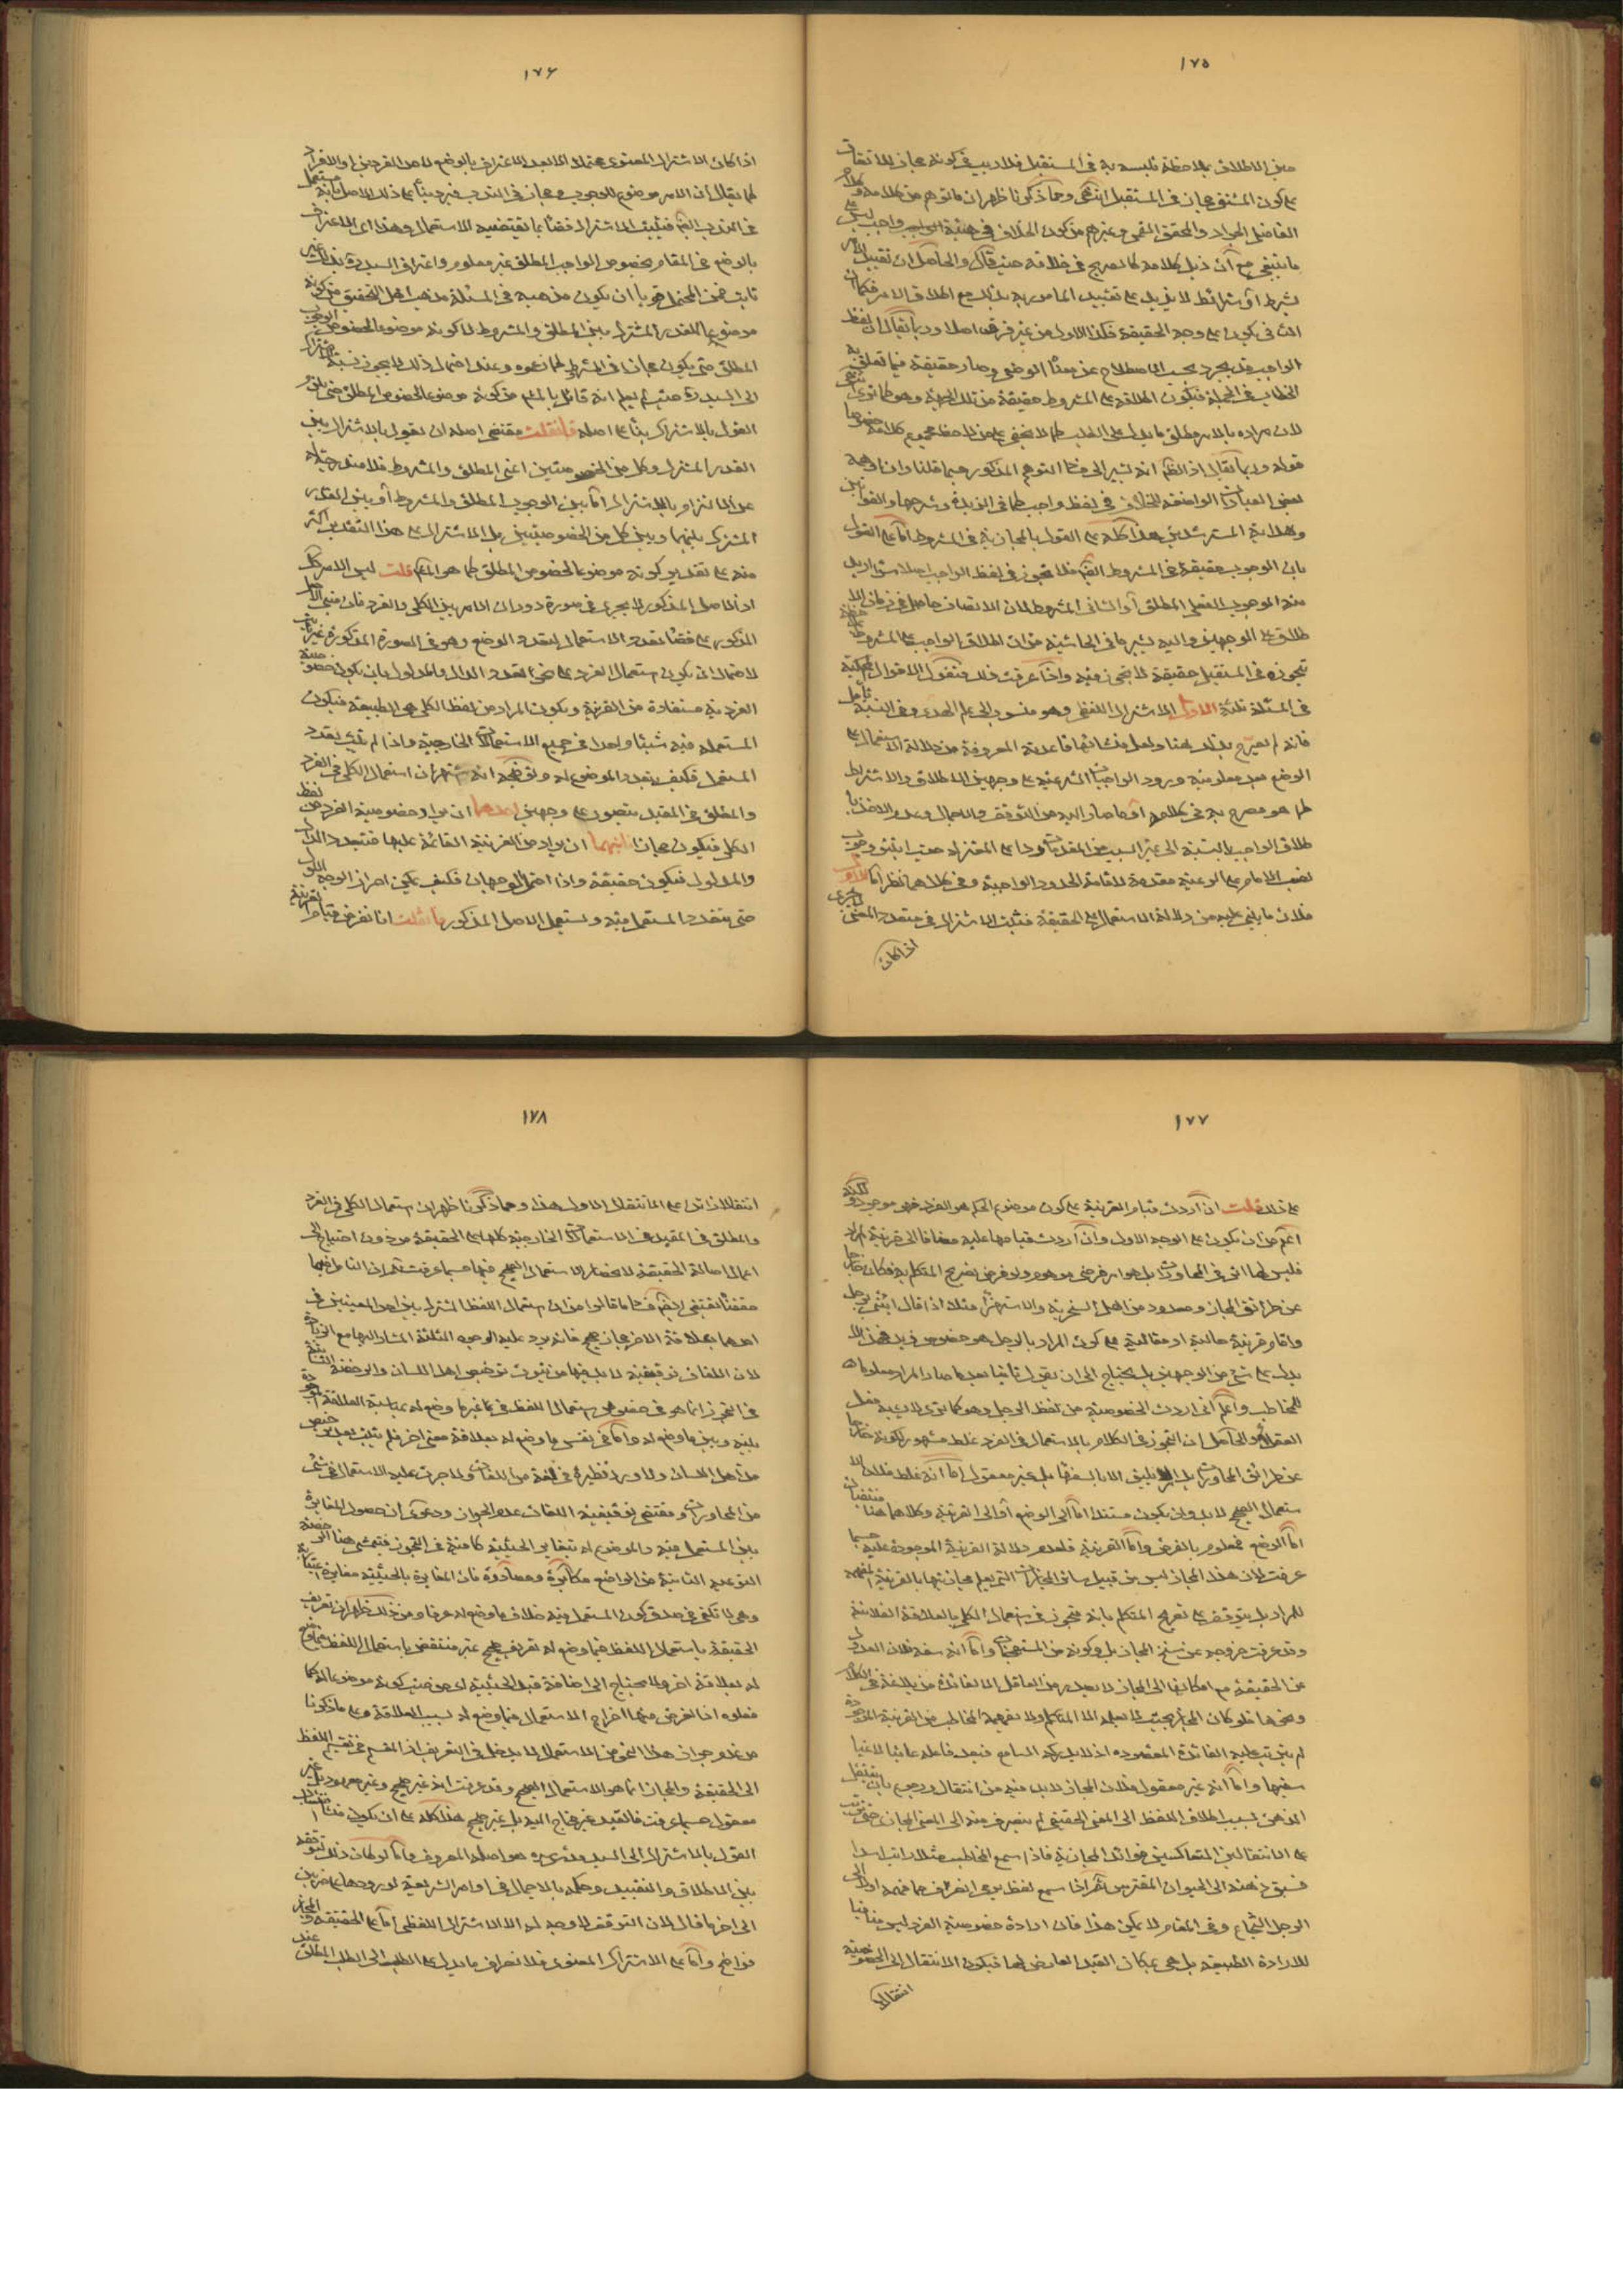 ١٧٥
حين الاطلاق بملاحظة تلبسه به فى المستقبل فلا ريب فى كونه مجازا للاتفاق
على كون المشتق مجازا فى المستقبل انتهى ومما ذكرنا ظهر ان ما توهم من كلامه وكلام
الفاضل الجواد والمحقق القمى وغيرهم من كون الخلاف فى هيئة الواجب ليس على
ما ينبغى مع ان ذيل كلامه كالصريح فى خلافه حيث قال والحاصل ان تقييد الامر
بشرط او شرائط لا يزيد على تقييد المأمور به بذلك مع اطلاق الامر فكما ان
الثانى يكون على وجه الحقيقة فكذا الاول من غير فرق اصلا وربما يقال ان لفظ
الواجب قد يجرد بحسب الاصطلاح عن معناه الوصفى وصار حقيقة فيما تعلق به
الخطاب فى الجملة فيكون اطلاقه على المشروط حقيقة من تلك الجهة وهو كما ترى
لان مراده بالامر مطلق ما يدل على الطلب كما لا يخفى على من لاحظ مجموع كلامه خصوصا
قوله وربما يقال اذ الظاهر انه يشير الى هذا التوهم المذكور
بعض العبارات الواضعة للخلاف فى لفظ واجب كما فى الزبدة وشرحها والقوانين
وهداية المسترشدين هذا كله على القول بالمجازية فى المشروط اما على القول
بان الوجوب حقيقة فى المشروط ايضا فلا تجوز فى لفظ الواجب اصلا سواء اريد
منه الوجوب الفعلى المطلق او الشانى المشروط لان الاتصاف حاصل فى زمان الا
طلاق على الوجهين واليه يشير ما فى الحاشية من ان اطلاق الواجب على المشروط
تجوزه فى المستقبل حقيقة لا تجوز فيه واذا عرفت ذلك فنقول الاقوال المحكية
فى المسئلة ثلثة الاول الاشتراك اللفظى وهو منسوب الى علم الهدى وفى النسبة تأمل
فانه لم يصرح بذلك هنا ولعل منشأها قاعدته المعروفة من دلالة الاستعمال على
الوضع بعد معلومية ورود الواجبات الشرعية على وجهين الاطلاق والاشتراط
كما هو مصرح به فى كلامه او ما صار اليه من التوقف والاجمال وعدم الاخذ با
طلاق الواجب بالنسبة الى غير السبب من المقدمات ردا على المعتزلة حيث اثبتوا وجوب
نصب الامام على الرعية مقدمة لاقامة الحدود الواجبة وفى كلاهما نظر اما الاول
فلان ما بنى عليه من دلالة الاستعمال على الحقيقة فثبت الاشتراك فى متعدد المعنى
اذا كان
١٧٦
اذا كان الاشتراك المعنوى محتملا انما بعد الاعتراف بالوضع لاحد الفردين او الافراد
كما يقال ان الامر موضوع للوجوب ومجاز فى الندب فيرد بناء على ذلك الاصل بانه مستعمل
فى الندب ايضا فيثبت الاشتراك قضاء بما يقتضيه الاستعمال وهذا اى الاعتراف
بالوضع فى المقام بخصوص الواجب المطلق غير معلوم واعتراف السيد ره بذلك غير
ثابت فمن المحتمل قويا ان يكون مذهبه فى المسئلة مذهب اهل التحقيق من كونه
موضوعا للقدر المشترك بين المطلق والمشروط لا كونه موضوعا لخصوص الوجوب
المطلق حتى يكون مجازا فى المشروط كما زعموه وعند احتمال ذلك لا يجوز نسبة الاشتراك
الى السيد ره حيث لم يعلم انه قائل بالملزوم من كونه موضوعا لخصوص المطلق حتى يلزم
القول بالاشتراك بناء على اصله فان قلت مقتضى اصله ان يقول بالاشتراك بين
القدر المشترك وكل من الخصوصيتين اعنى المطلق والمشروط فلا مندوحة له
عن الالتزام بالاشتراك اما بين الوجوب المطلق والمشروط او بين القدر
المشترك بينهما وبين كل من الخصوصيتين بل الاشتراك على هذا التقدير اكثر
منه على تقدير كونه موضوعا لخصوص المطلق كما هو المزعوم قلت ليس الامر كذلك
اذ الاصل المذكور لا يجرى فى صورة دوران الامر بين الكلى والفرد فان مبنى الاصل
المذكور على قضاء تعدد الاستعمال لتعدد الوضع وهو فى الصورة المذكورة غير ثابت
لاحتمال ان يكون استعمال الفرد على نحو تعدد الدال والمدلول بان يكون خصوصية
الفردية مستفادة من القرينة ويكون المراد من لفظ الكلى هى الطبيعة فيكون
المستعمل فيه شيئا واحدا فى جميع الاستعمالات الخارجية واذا لم يثبت تعدد
المستعمل فكيف بتعدد الموضوع له وتوضيحه انه اشتهر ان استعمال الكلى فى الفرد
والمطلق فى المقيد يتصور على وجهين احدهما ان يراد خصوصية الفرد من لفظ
الكلى فيكون مجازا ثانيهما ان يراد من القرينة القائمة عليها فتعدد الدال
والمدلول فيكون حقيقة واذا احتمل الوجهان فكيف يمكن احراز الوجه الاول
حتى يتعدد المستعمل فيه ويستعمل الاصل المذكور فان قلت انا نفرض قيام القرينة
١٧٧
على ذلك قلت ان اردت قيام القرينة على كون موضوع الحكم هو الفرد فهو موجود ولكنه
اعم من ان يكون على الوجه الاول وان اردت قيامها عليه مضافا الى قرينة المراد
فليس لها اثر فى المحاورات بل هو امر فرضى موهوم ولو فرض تصريح المتكلم به فكان خارجا
عن طرائق المجاز ومعدود من اهل السخرية والاستهزاء مثلا اذا قال ائتنى برجل
واقام قرينة حالية او مقالية على كون المراد بالرجل هو خصوص زيد فهذا لا
يدل على شئ من الوجهين بل يحتاج الى ان يقول ثانيا بعد ما صار المراد معلوما
للمخاطب واعلم انى اردت الخصوصية من لفظ الرجل وهو كما ترى لا يرضيه فعل
العقلاء والحاصل ان التجوز فى الكلام بالاستعمال فى الفرد غلط مشهور لكونه خارجا
عن طرائق المحاورات بل لا يليق الا بالسفهاء بل غير معقول اما انه غلط فلان الا
ستعمال الصحيح لا بد وان يكون مستندا اما الى الوضع او الى القرينة وكلاهما هنا منتفيان
اما الوضع فمعلوم بالفرض واما القرينة فلعدم دلالة القرينة الموجودة عليه حسبما
عرفت لان هذا المجاز ليس من قبيل سائر المجازات التى يعلم مجازيتها بالقرينة المفهمة
للمراد بل يتوقف على تصريح المتكلم بانه متجوز فى استعمال الكلى بالعلاقة الفلانية
وقد عرفت خروجه عن سنخ المجاز بل وكونه من المستهجنات واما انه سفه فلان العدول
عن الحقيقة مع امكانها الى المجاز لا يصدر من العاقل الا لفائدة من بلاغة فى الكلام
ونحوها فلو كان المجاز بحيث لا يعلمه الا المتكلم ولا يفهمه المخاطب من القرينة الموجودة
لم يترتب عليه الفائدة المقصودة اذ لا يدركه السامع فيعد فاعله عابثا لاغيا
سفيها واما انه غير معقول فلان المجاز لا بد فيه من انتقال ورجوع بان ينتقل
الذهن بسبب اطلاق اللفظ الى المعنى الحقيقى ثم ينصرف منه الى المعنى المجازى حتى يترتب
على الانتقالين المتعاكسين فوائد المجازية فاذا سمع المخاطب مثلا رايت اسدا
فسبق ذهنه الى الحيوان المفترس ثم اذا سمع لفظ يرمى انصرف مما فهمه اولا الى
الرجل الشجاع وفى المقام لا يمكن هذا فان ارادة خصوصية الفرد ليس منافيا
للارادة الطبيعة بل هى بمكان القيد العارض لها فيكون الانتقال الى الخصوصية
انتقالا
١٧٨
انتقالا زائدا على الانتقال الاول هذا ومما ذكرنا ظهر ان استعمال الكلى فى الفرد
والمطلق فى المقيد فى الاستعمالات الخارجية كلها على الحقيقة من دون احتياج الى
اعمال اصالة الحقيقة لانحصار الاستعمال الصحيح فيها حسبما عرفت ثم ان التامل فيما
حققناه يقتضى ايضا فساد ما قالوا من ان استعمال اللفظ المشترك بين احد المعنيين فى
احدهما بعلاقة الاخر مجاز صحيح فانه يرد عليه الوجوه الثلثة المشار اليها مع الزيادة
لان اللغات توقيفية لا بد فيها من ثبوت ترخيص اهل اللسان والرخصة الثابتة
فى التجوز انما هو فى خصوص استعمال اللفظ فى غير ما وضع له بمناسبة العلاقة الموجودة
بينه وبين ما وضع له واما فى نفس ما وضع له بعلاقة معنى اخر فلم يثبت بعد ترخيص
من اهل اللسان ولا ورد نظيره فى لغة من اللغات ولا جرت عليه الاستعمال فى شئ
من المحاورات ومقتضى توقيفية اللغات عدم الجواز ودعوى ان حصول المغايرة
بين المستعمل فيه والموضوع له بتغاير الحيثية كافية فى التجوز فيتمشى هنا الرخصة
النوعية الثابتة من الواضع مكابرة ومصادرة فان المغايرة بالحيثية مغايرة اعتبارية
وهى لا تكفى فى صدق كون المستعمل فيه خلاف ما وضع له عرفا ومن ذلك ظهر ان تعريف
الحقيقة باستعمال اللفظ فيما وضع له تعريف صحيح غير منتقض باستعمال اللفظ فيما وضع
له بعلاقة اخرى ولا يحتاج الى اضافة قيد الحيثية اى من حيث كونه موضوعا له كما
فعلوه اخذا لغرض منها اخراج الاستعمال فيما وضع له بسبب العلاقة وعلى ما ذكرنا
من عدم جواز هذا النحو من الاستعمال لا يدخل فى التعريف اذ المقسم فى تقسيم اللفظ
الى الحقيقة والمجاز انما هو الاستعمال الصحيح وقد عرفت انه غير صحيح وغير معهود بل غير
معقول حسبما عرفت فالقيد غير محتاج اليه بل غير صحيح هذا كله على ان يكون منشأ انتساب
القول بالاشتراك الى السيد وغيره هو اصله المعروف واما لو كان ذلك توقفه
بين الاطلاق والتقييد وحكمه بالاجمال فى اوامر الشريعة لورودها على ضربين
الى اخر ما قال لان التوقف لا وجه له الا الاشتراك اللفظى اما على الحقيقة والمجاز
فواضح واما على الاشتراك المعنوى فلانصراف ما يدل على الطلب الى الطلب المطلق عند